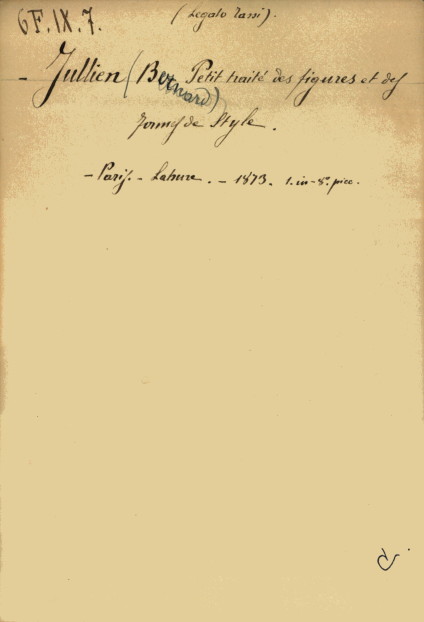 6F.IX.7.
(Legato Tassi).
- Jullien (Bernard) Petit traité des figures et des
formes de Style.
- Paris. - Lahure. - 1873. 1. in-8º. picc.